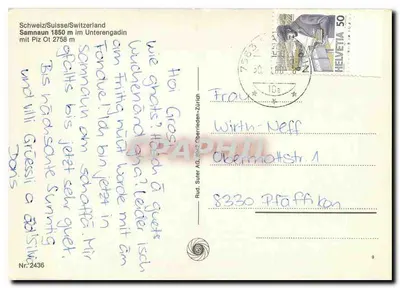 Schweiz/Suisse/Switzerland
Samnaun 1850 m im Unterengadin
mit Piz Ot 2758 m
Hoi Grosi
Wie ghats? Häsch ä guets
wuchenänd gha? Leider isch
am Fritig nüt worde mit äm
Fondue! Ich bin jetzt in
Samnaun am schaffä. Mir
gfallts bis jetzt sehr guet.
Bis nächscht Sunntig
und vill Grüessli
Doris
Nr. 2436
Rud. Suter AG, Oberrieden-Zürich
HELVETIA 50
7563
Frau
Wirth-Neff
1
8330 Pfäffikon